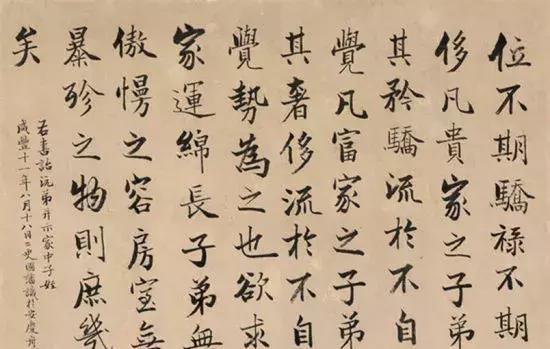 位不期驕禄不期
侈凡貴家之子弟
其矜驕流於不自
覺凡富家之子弟
其奢侈流於不自
覺勢為之也欲求
家運綿長子弟無
傲慢之容房室無
暴殄之物則庶幾
矣
右書詒沅弟并示家中子姪
咸豐十一年八月十八日二更國藩識於安慶舟